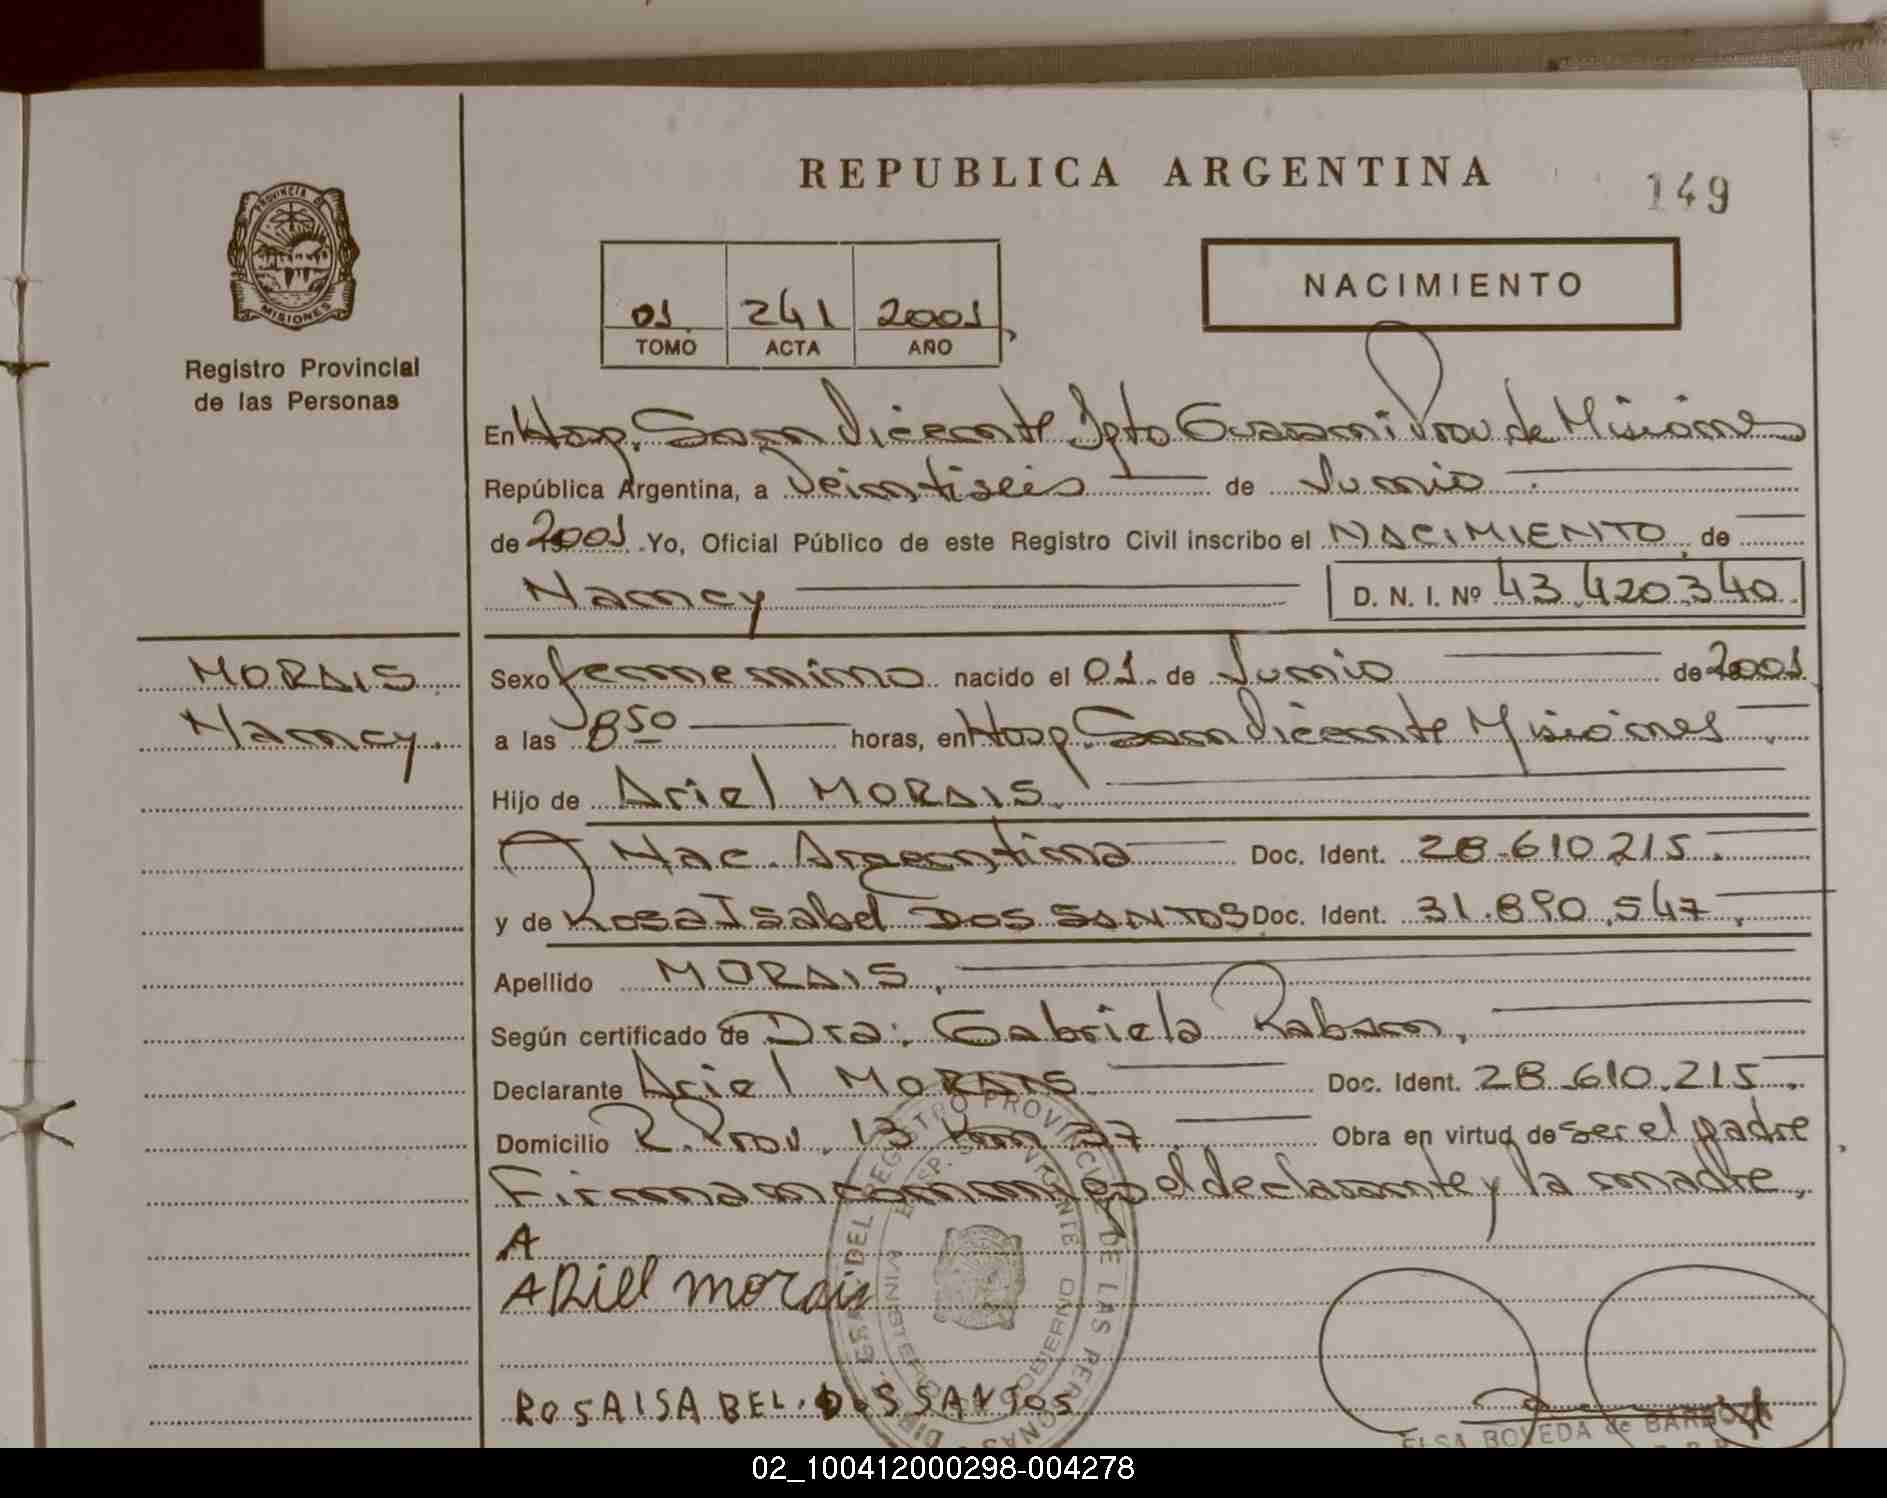 REPUBLICA ARGENTINA
149
PROVINCIA DE
MISIONES
Registro Provincial
de las Personas
NACIMIENTO
01 241 2001
TOMO ACTA AÑO
En Hosp. San Vicente Dpto Guarani Prov de Misiones
República Argentina, a Veintiseis de Junio
de 2001 Yo, Oficial Público de este Registro Civil inscribo el NACIMIENTO, de
Nancy D. N. I. Nº 43.420.340
MORAIS
Nancy.
Sexo femenino nacido el 01 de Junio de 2001
a las 8 50 horas, en Hosp. San Vicente Misiones
Hijo de Ariel MORAIS.
Nac. Argentina Doc. Ident. 28.610.215.
y de Rosa Isabel DOS SANTOS Doc. Ident. 31.890.547.
Apellido MORAIS.
Según certificado de Dra: Gabriela Raban,
Declarante Ariel MORAIS Doc. Ident. 28.610.215.
Domicilio R. Prov. 13 Km 37. Obra en virtud de ser el padre,
Firman conmigo el declarante y la madre,
A
ARiel morais
ROSA ISABEL. DOS SANTOS
ELSA BOVEDA de BARBOZA
02_100412000298-004278